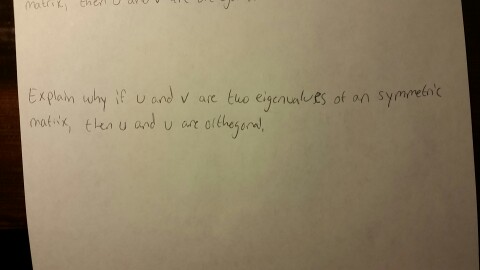 matrix, then u and v are
Explain why if u and v are two eigenvalues of an symmetric
matrix, then u and v are orthogonal.